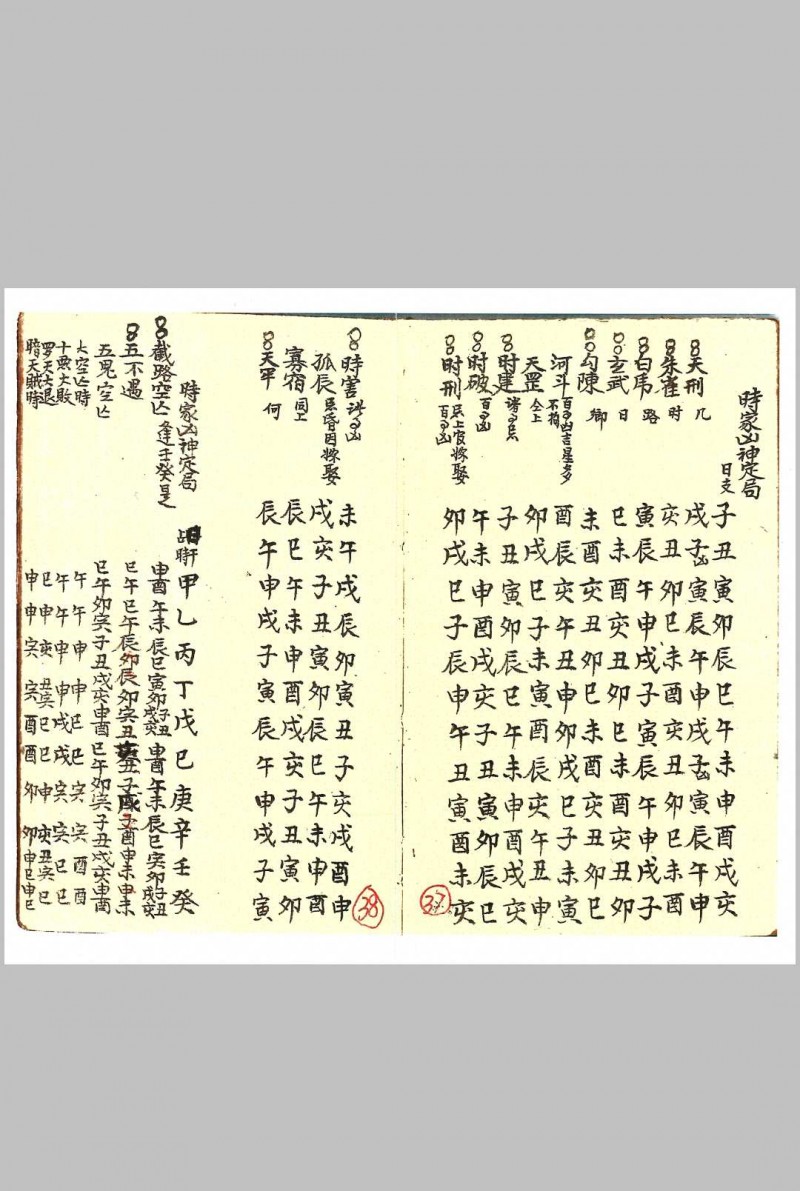 時家凶神定局 日支 子丑寅卯辰巳午未申酉戌亥
天刑 几 戌子寅辰午申戌子寅辰午申
朱雀 时 亥丑卯巳未酉亥丑卯巳未酉
白虎 路 寅辰午申戌子寅辰午申戌子
玄武 日 巳未酉亥丑卯巳未酉亥丑卯
勾陳 鄉 未酉亥丑卯巳未酉亥丑卯巳
河斗 百事凶吉星多不拘 酉辰亥午丑申卯戌巳子未寅
天罡 仝上 卯戌巳子未寅酉辰亥午丑申
时建 諸事忌 子丑寅卯辰巳午未申酉戌亥
时破 百事凶 午未申酉戌亥子丑寅卯辰巳
时刑 忌上官嫁娶百事凶 卯戌巳子辰申午丑寅酉未亥
37
時害 諸事凶 未午戌辰卯寅丑子亥戌酉申
孤辰 忌昏因嫁娶 戌亥子丑寅卯辰巳午未申酉
寡宿 同上 辰巳午未申酉戌亥子丑寅卯
天罕 何 辰午申戌子寅辰午申戌子寅
38
時家凶神定局 時干 甲乙丙丁戊己庚辛壬癸
截路空亡 逢壬癸是 申酉午未辰巳寅卯子丑戌亥申酉午未辰巳寅卯子丑戌亥
五不遇 巳午巳午辰卯辰卯亥丑丑子子酉申未申未
五鬼空亡 巳午卯亥子丑戌亥申酉巳午卯亥子丑戌亥申酉
大空亡時 午午申申巳巳亥亥酉酉
十惡大敗 午午申申戌戌亥亥巳巳
罗天大退 巳申亥丑亥巳巳申亥丑亥巳
暗天賊時 申申亥亥酉酉卯卯申巳申巳